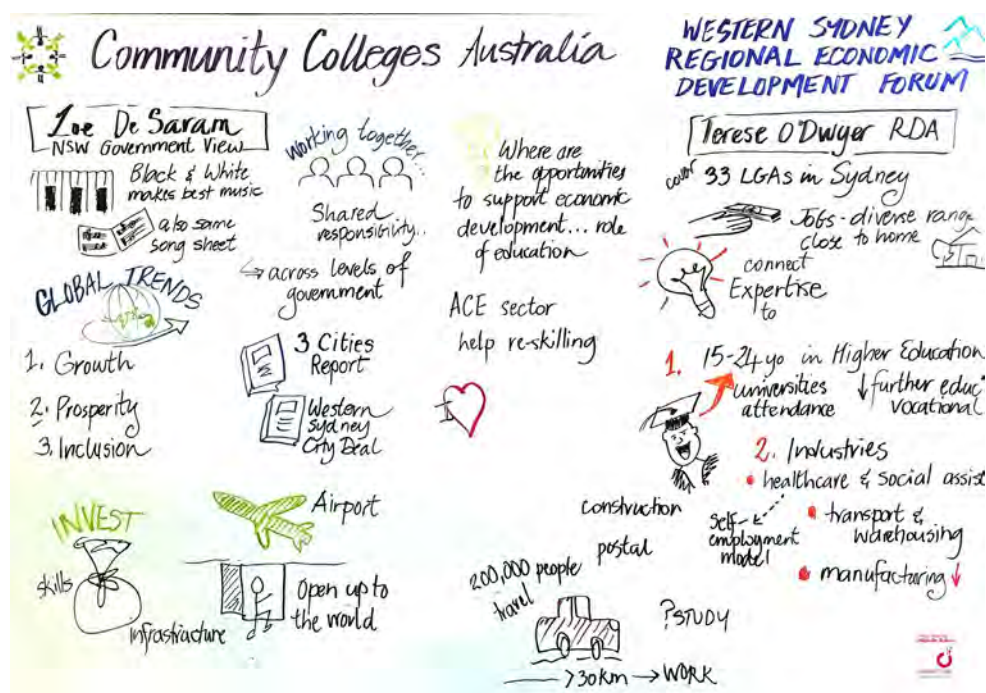 Community Colleges Australia
WESTERN SYDNEY
REGIONAL ECONOMIC
DEVELOPMENT FORUM
Zoe De Saram
NSW Government View
Black & White
makes best music
also same
song sheet
GLOBAL TRENDS
1. Growth
2. Prosperity
3. Inclusion
INVEST
skills
infrastructure
Working together...
Shared
responsibility...
across levels of
government
3 Cities
Report
Western
Sydney
City Deal
Airport
Open up to
the world
Where are
the opportunities
to support economic
development... role
of education
ACE sector
help re-skilling
construction
postal
200,000 people
travel
>30km → WORK
?STUDY
Terese O'Dwyer RDA
cover 33 LGAs in Sydney
Jobs - diverse range
close to home
connect
Expertise
to
1. 15-24yo in Higher Education
universities
attendance
↓ further educ"
vocational
2. Industries
• healthcare & social assist
self-
employment
model
• transport &
warehousing
• manufacturing ↓